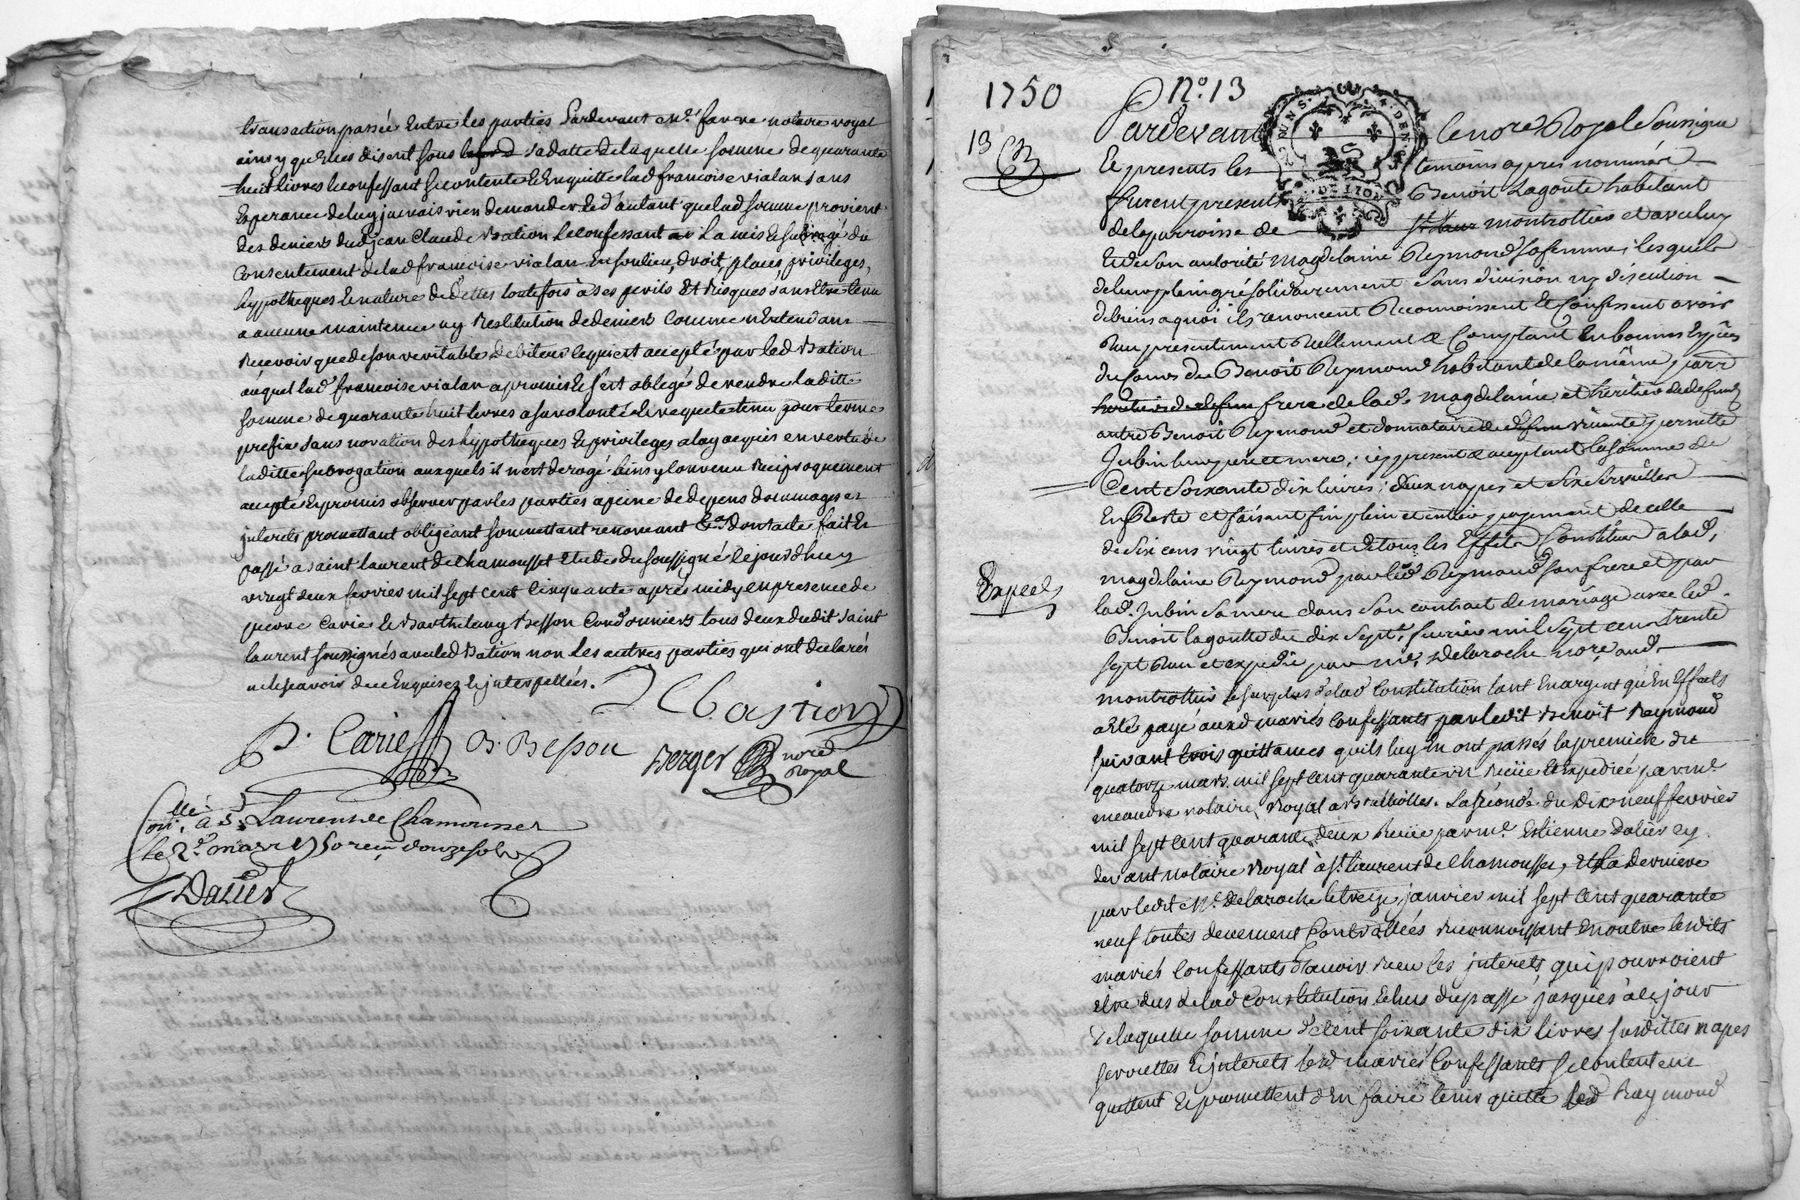 transaction passée Entre les parties Pardevant Me. favre notaire royal
ainsy quelles disent sous sa datte de laquelle somme de quarante
huit livres le confessant se contente Et Enquitte lad francoise vialan sans
Esperance de luy jamais rien demander Et d'autant que lad somme provient
des deniers dud Jean Claude Bation le confessant la mis Et subrogé du
Consentement de lad francoise vialan En son lieu, droit, places, privileges,
hyppotheques Et nature de dettes toutefois à ses perils Et Risques sans Etre tenu
a aucune maintenue ny Restitution de deniers Comme n'Entendant
Recevoir que de son veritable debiteur le quiest accepté par led Bation
auquel lad francoise vialan a promis Et s'est obligé de rendre laditte
somme de quarante huit livres a sa volonté Et requete tenu pour terme
prefix sans novation des hyppotheques Et privileges a luy acquis en vertu de
laditte subrogation auxquels il n'est derogé. Ainsy Convenu Reciproquement
accepté Et promis observer par les parties a peine de depens dommages et
interets promettant obligeant soumettant renoncant &a. dont acte fait Et
passé a saint laurent de Chamousset Etude du soussigné le jourd'huy
vingt deux fevrier mil sept cent Cinquante après midy en presence de
pierre Carié Et Barthelemy Besson Cordonniers tous deux dudit saint
laurent soussignés avec led Bation non les autres parties qui ont declarés
ne le scavoir de ce Enquises Et interpellées.
J C bastion
P. Carié B. Besson Berger nore
Royal
Conllé. à St. Laurent de Chamousset
le 2e. mars 1750 reçu douze sols
Dalier
1750 No. 13
13
Pardevant le nore. Royal Soussigné
Et presents les temoins apres nommés
furent presents Benoit Lagoute habitant
de la parroisse de montrottier et avec luy
Et de son autorité Magdelaine Reymond sa femme, lesquels
de leur plein gré solidairement sans division ny discution
de biens a quoi ils renoncent Reconnoissent Et Confessent avoir
Reçu presentement Reellement & Comptant En bonnes Espèces
du Cours de Benoit Reymond habitant de la même parr
frere de lad. Magdelaine et heritier de defunt
autre Benoit Reymond et donnataire de vivante pernette
Jubin leurs pere et mere, icy present & acceptant la somme de
Cent Soixante dix livres, deux napes et six Serviettes
En Reste et faisant fin plein et entier payement de celle
de six cens vingt livres et de tous les Effets Constitués a lad.
Magdelaine Reymond par led. Reymond son frere et par
lad. Jubin sa mere dans son contract de mariage avec led.
Benoit lagoutte du dix sept. fevrier mil sept cens trente
sept Reçu et expedié par me. Delaroche nore. aud.
Expeé
montrottier le surplus de lad Constitution tant En argent qu'En Effets
a Eté payé auxd mariés Confessants par ledit Benoit Reymond
suivant trois quittances qu'ils luy En ont passés la premiere du
quatorze mars mil sept cent quarante un Reçüe Et Expediée par me.
notaire Royal a . La seconde du Dix neuf fevrier
mil sept cent quarante deux Reçüe par me. Estienne Dalier cy
devant notaire Royal à St. laurent de Chamousset, Et La derniere
par ledit Me. Delaroche le treize janvier mil sept cent quarante
neuf toutes deuement Controllées Reconnoissant En outre lesdits
mariés Confessants d'avoir Reçu les interets qui pouvroient
être dus de lad Constitution Echus du passé jusques à ce jour
De laquelle somme de Cent soixante dix livres susdittes napes
serviettes Et interets lesd mariés Confessants se contentent
quittent Et promettent d'En faire tenir quitte led Raymond